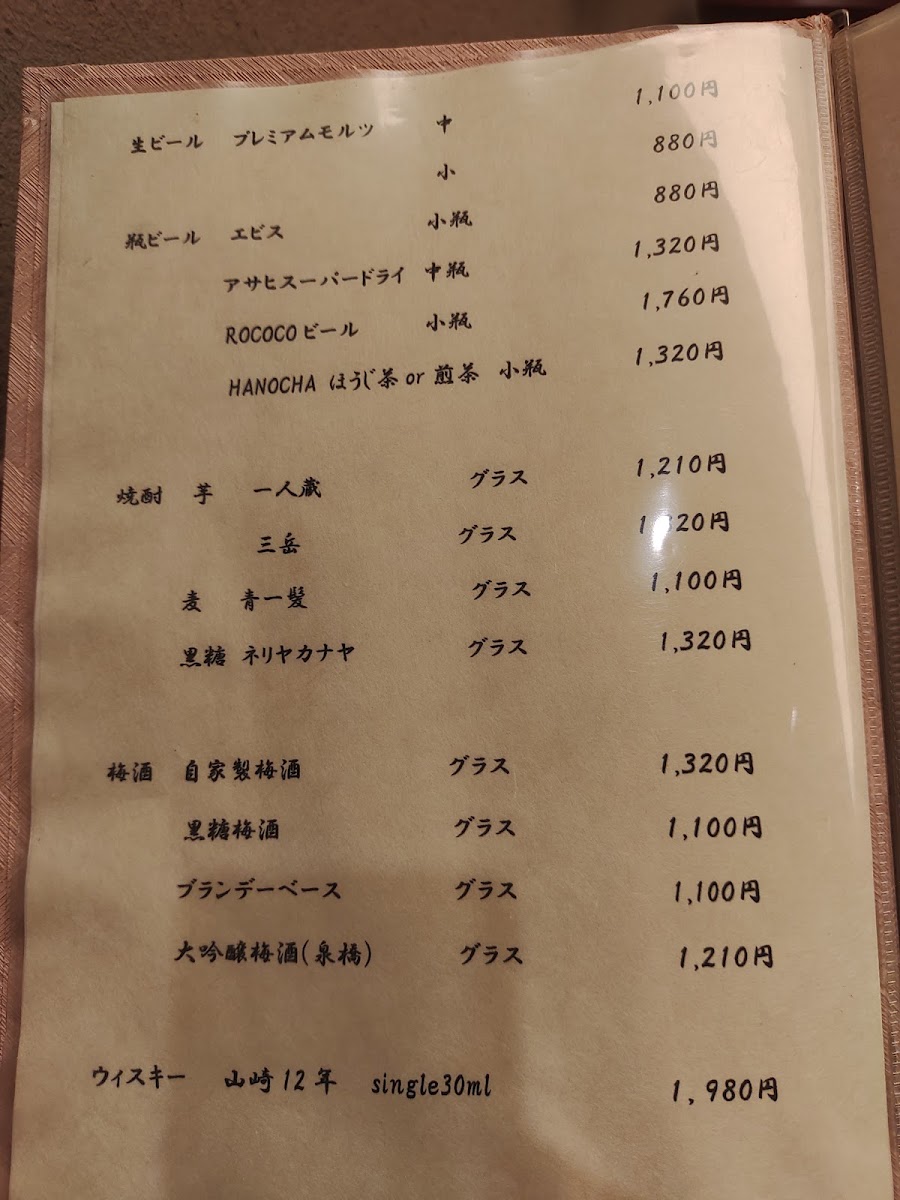 生ビール プレミアムモルツ 中 1,100円
小 880円
瓶ビール エビス 小瓶 880円
アサヒスーパードライ 中瓶 1,320円
ROCOCOビール 小瓶 1,760円
HANOCHA ほうじ茶 or 煎茶 小瓶 1,320円
焼酎 芋 一人蔵 グラス 1,210円
三岳 グラス
麦 青一髪 グラス 1,100円
黒糖 ネリヤカナヤ グラス 1,320円
梅酒 自家製梅酒 グラス 1,320円
黒糖梅酒 グラス 1,100円
ブランデーベース グラス 1,100円
大吟醸梅酒(泉橋) グラス 1,210円
ウィスキー 山崎12年 single30ml 1,980円